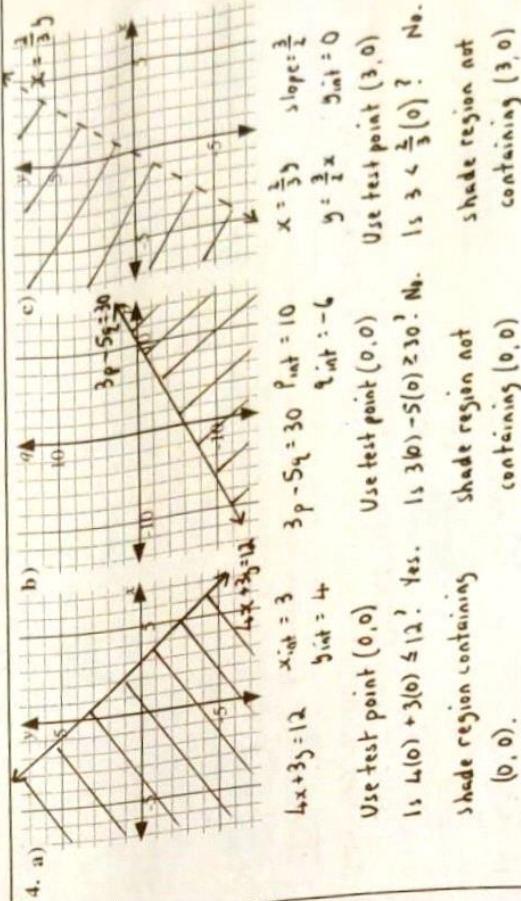 4. a)
y
5
x
-5
5
-5
4x+3y=12
4x+3y=12 x int = 3
y int = 4
Use test point (0,0)
Is 4(0) + 3(0) ≤ 12? Yes.
shade region containing
(0,0).
b)
q
10
3p-5q=30
-10
-10
3p-5q=30 p int = 10
q int = -6
Use test point (0,0)
Is 3(0)-5(0) ≥ 30? No.
shade region not
containing (0,0)
c)
y
5
x = 2/3 y
x
-5
5
-5
x = 2/3 y slope = 3/2
y = 3/2 x y int = 0
Use test point (3,0)
Is 3 < 2/3 (0)? No.
shade region not
containing (3,0)